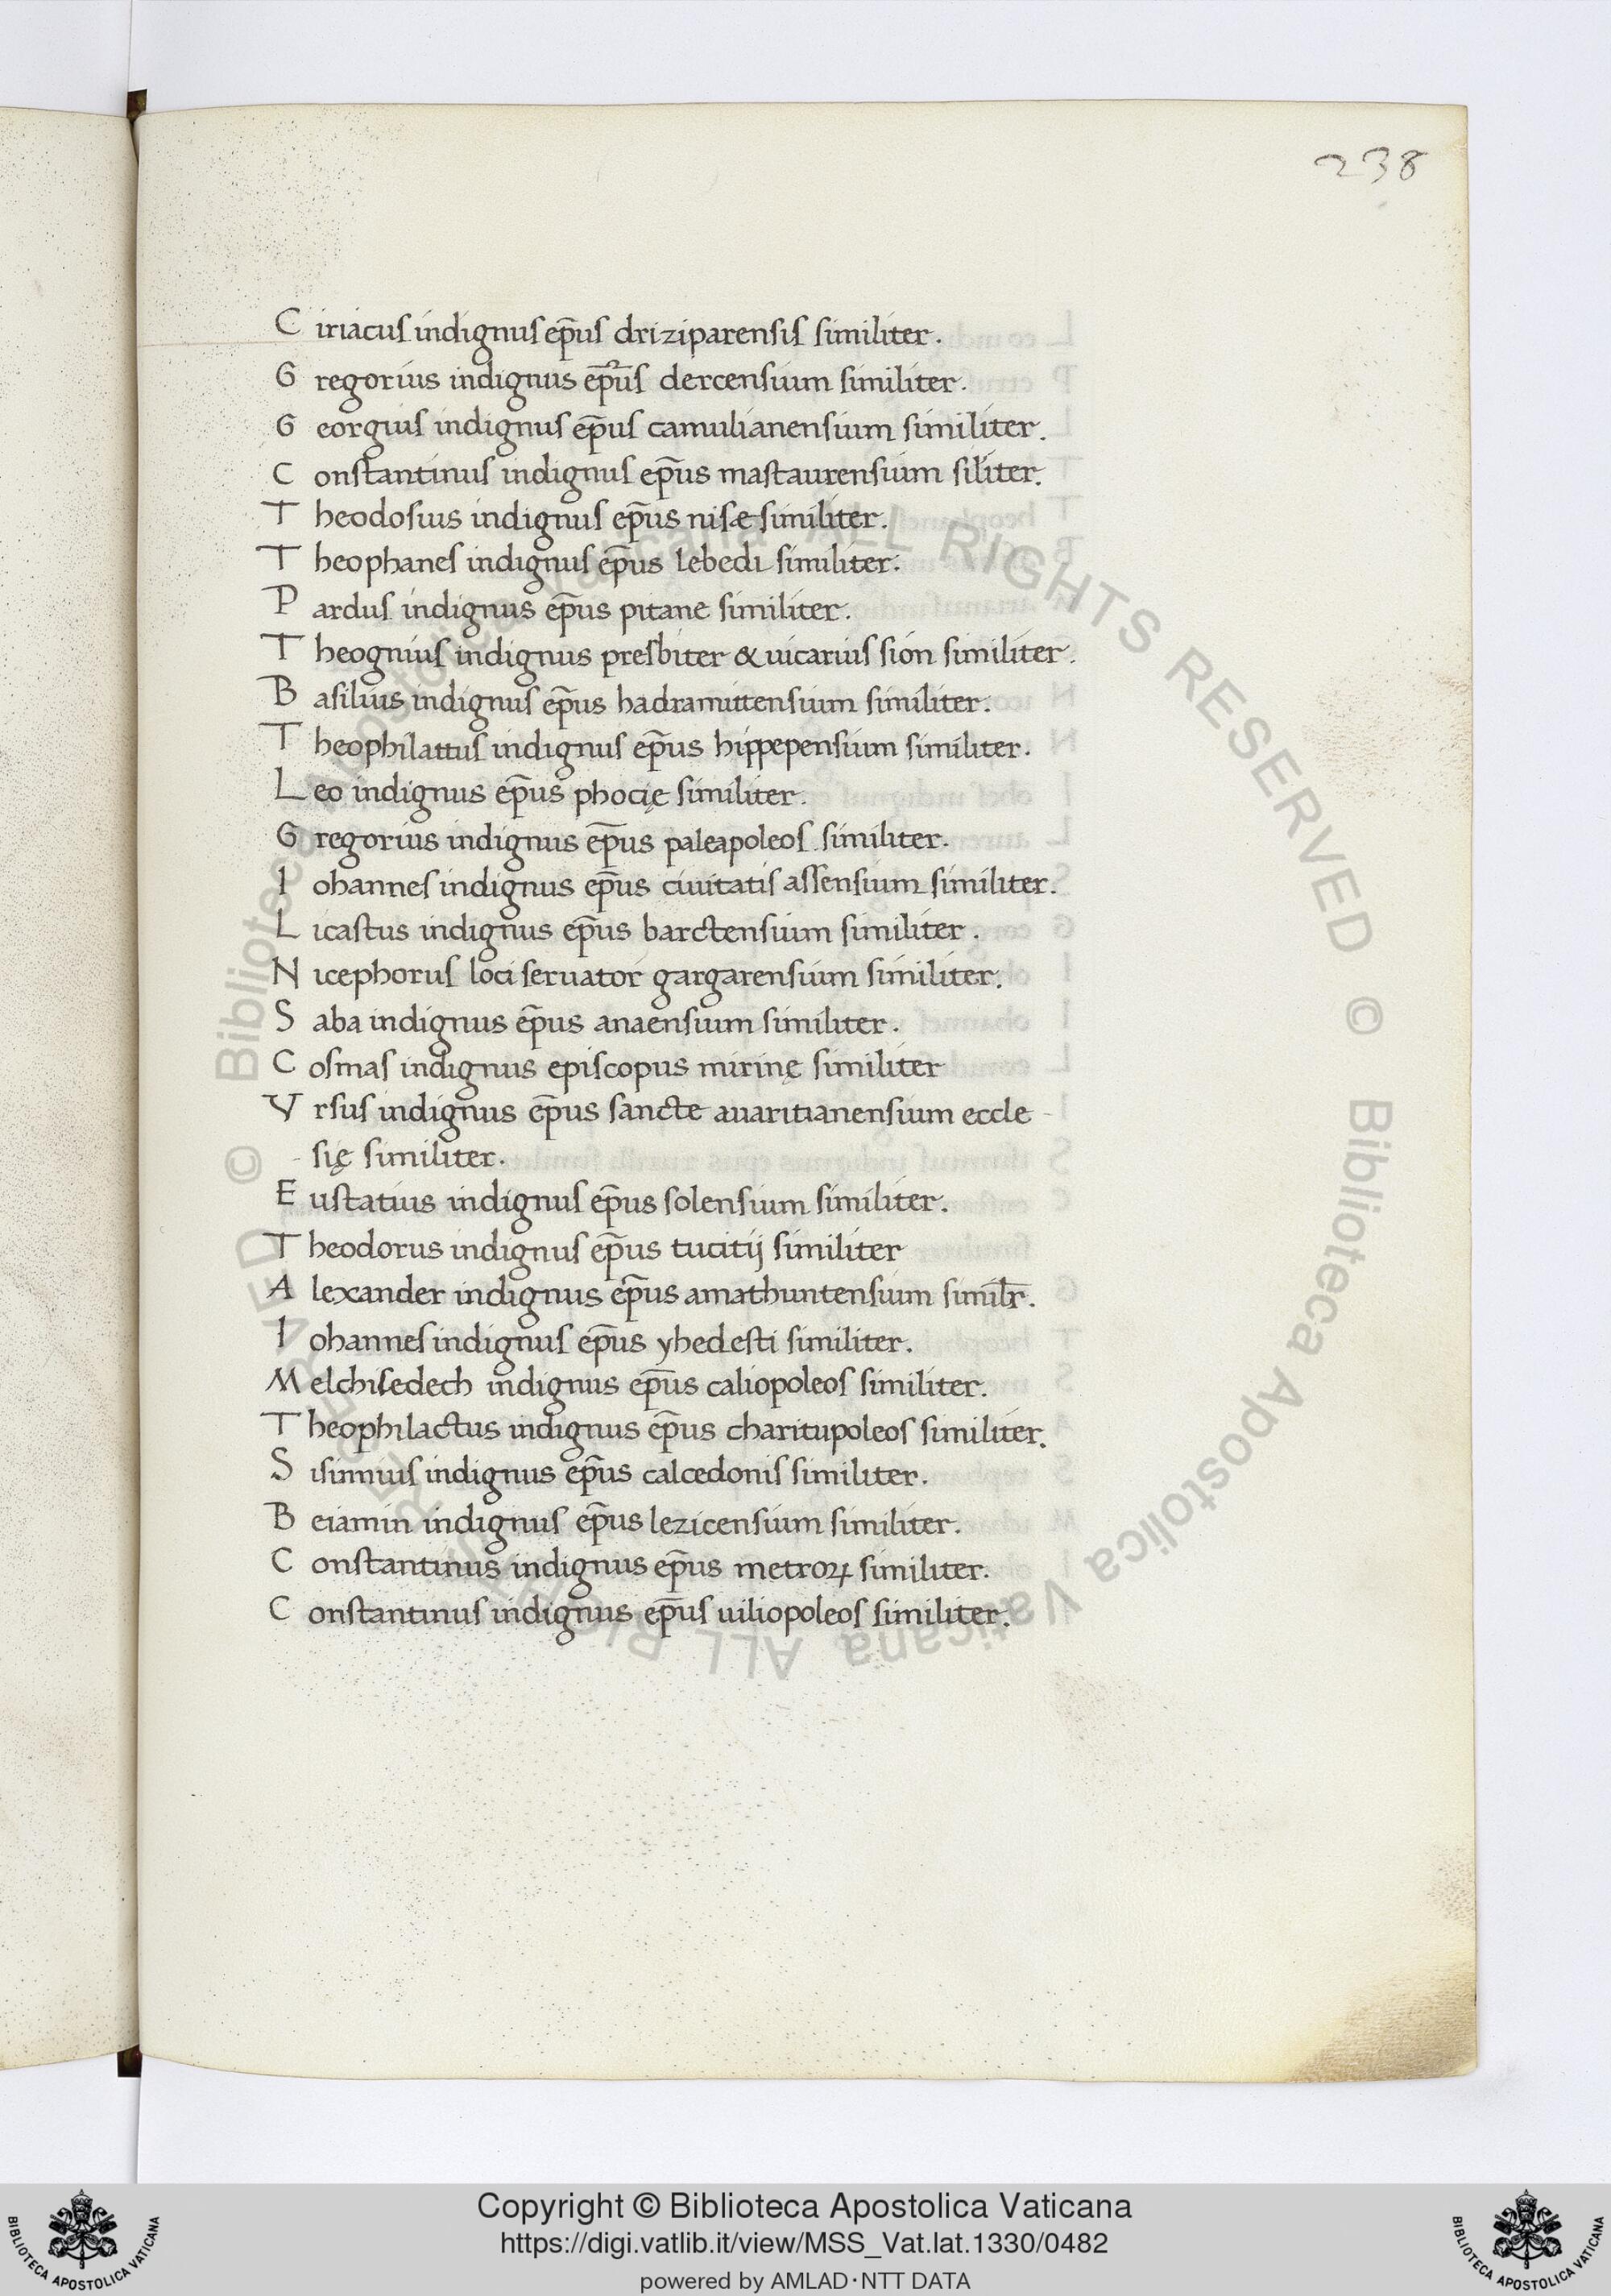 238
Ciriacus indignus ep̄us driziparensis similiter.
Gregorius indignus ep̄us dercensium similiter.
Georgius indignus ep̄us camulianensium similiter.
Constantinus indignus ep̄us mastaurensium siliter.
Theodosius indignus ep̄us nisæ similiter.
Theophanes indignus ep̄us lebedi similiter.
Pardus indignus ep̄us pitane similiter.
Theognius indignus presbiter & uicarius sion similiter.
Basilius indignus ep̄us hadramittensium similiter.
Theophilattus indignus ep̄us hippepensium similiter.
Leo indignus ep̄us phocię similiter.
Gregorius indignus ep̄us paleapoleos similiter.
Iohannes indignus ep̄us ciuitatis assensium similiter.
Licastus indignus ep̄us barctensium similiter.
Nicephorus loci seruator gargarensium similiter.
Saba indignus ep̄us anaensium similiter.
Cosmas indignus episcopus mirinę similiter
Vrsus indignus ep̄us sancte auaritianensium eccle-
-się similiter.
Eustatius indignus ep̄us solensium similiter.
Theodorus indignus ep̄us tucitij similiter
Alexander indignus ep̄us amathuntensium simil̄r.
Iohannes indignus ep̄us yhedesti similiter.
Melchisedech indignus ep̄us caliopoleos similiter.
Theophilactus indignus ep̄us charitupoleos similiter.
Sisinnius indignus ep̄us calcedonis similiter.
Beiamin indignus ep̄us lezicensium similiter.
Constantinus indignus ep̄us metroꝝ similiter.
Constantinus indignus ep̄us uiliopoleos similiter.
© Biblioteca Apostolica Vaticana ALL RIGHTS RESERVED © Biblioteca Apostolica Vaticana ALL RIGHTS RESERVED
Copyright © Biblioteca Apostolica Vaticana
https://digi.vatlib.it/view/MSS_Vat.lat.1330/0482
powered by AMLAD·NTT DATA
BIBLIOTECA APOSTOLICA VATICANA
BIBLIOTECA APOSTOLICA VATICANA